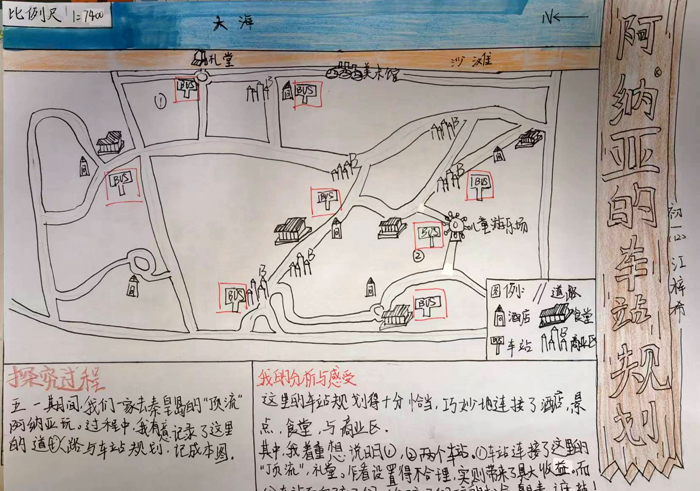 比例尺 1:7400
大海
N
阿纳亚的车站规划
初一(2) 江梓希
礼堂
美术馆
沙滩
BUS
BUS
①
BUS
BUS
BUS
BUS
②
儿童游乐场
BUS
BUS
图例: 道路
酒店 食堂
车站 商业区
探究过程
五一期间,我们一家去秦皇岛的"顶流"
阿纳亚玩。过程中,我有意记录了这里
的道路与车站规划,记成本图。
我的分析与感受
这里的车站规划得十分恰当,巧妙地连接了酒店,景
点,食堂,与商业区。
其中,我着重想说明①,②两个车站。①车站连接了这里的
"顶流",礼堂。乍看设置得不合理,实则带来了最大收益。而